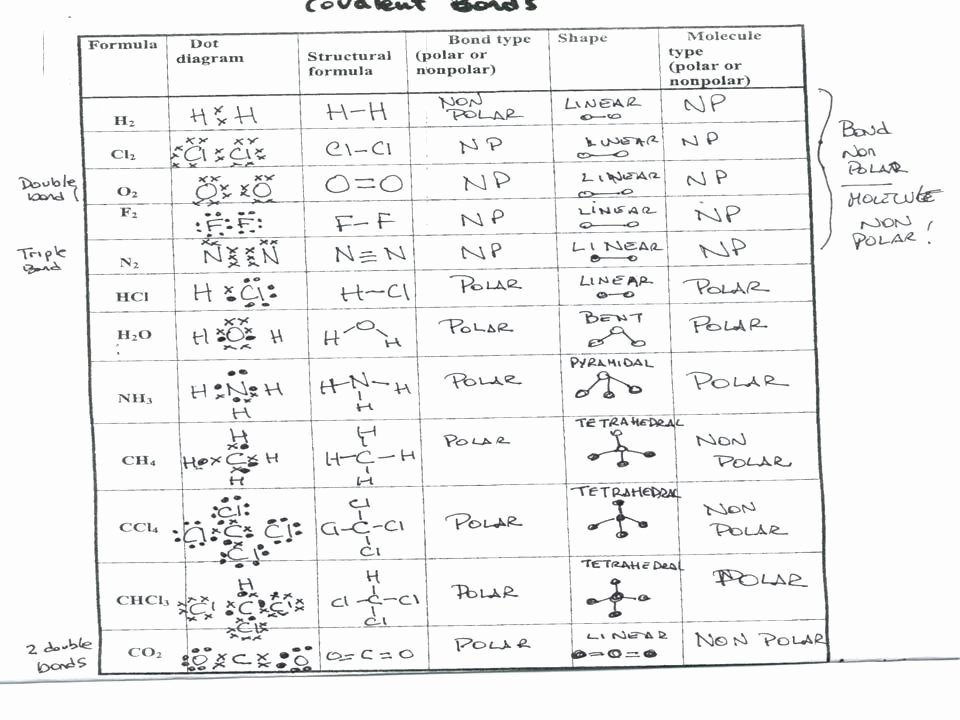 Covalent Bonds
Formula
Dot
diagram
Structural
formula
Bond type
(polar or
nonpolar)
Shape
Molecule
type
(polar or
nonpolar)
H₂
H ×× H
H–H
NON
POLAR
LINEAR
NP
Cl₂
Cl Cl
Cl–Cl
NP
LINEAR
NP
Double
bond
O₂
O O
O=O
NP
LINEAR
NP
F₂
F F
F–F
NP
LINEAR
NP
Triple
Bond
N₂
N N
N≡N
NP
LINEAR
NP
BOND
NON
POLAR
MOLECULE
NON
POLAR!
HCl
H Cl
H–Cl
POLAR
LINEAR
POLAR
H₂O
H O H
H O H
POLAR
BENT
POLAR
NH₃
H N H
H
H–N–H
H
POLAR
PYRAMIDAL
POLAR
CH₄
H
H C H
H
H
H–C–H
H
POLAR
TETRAHEDRAL
NON
POLAR
CCl₄
Cl
Cl C Cl
Cl
Cl
Cl–C–Cl
Cl
POLAR
TETRAHEDRAL
NON
POLAR
CHCl₃
H
Cl C Cl
Cl
H
Cl–C–Cl
Cl
POLAR
TETRAHEDRAL
POLAR
2 double
bonds
CO₂
O C O
O=C=O
POLAR
LINEAR
NON POLAR